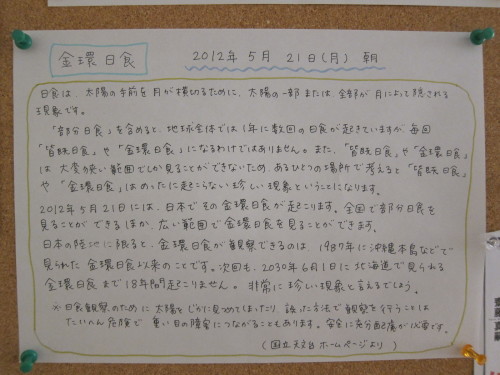 金環日食
2012年 5月 21日(月) 朝
日食は、太陽の手前を月が横切るために、太陽の一部または全部が月によって隠される
現象です。
「部分日食」を含めると、地球全体では1年に数回の日食が起きていますが、毎回
「皆既日食」や「金環日食」になるわけではありません。また、「皆既日食」や「金環日食」
は大変狭い範囲でしか見ることができないため、あるひとつの場所で考えると「皆既日食」
や「金環日食」はめったに起こらない珍しい現象ということになります。
2012年5月21日には、日本でその金環日食が起こります。全国で部分日食を
見ることができるほか、広い範囲で金環日食を見ることができます。
日本の陸地に限ると、金環日食が観察できるのは、1987年に沖縄本島などで
見られた金環日食以来のことです。次回も、2030年6月1日に北海道で見られる
金環日食まで18年間起こりません。非常に珍しい現象と言えるでしょう。
※日食観察のために太陽をじかに見つめてしまったり、誤った方法で観察を行うことは
たいへん危険で重い目の障害につながることもあります。安全に充分配慮が必要です。
(国立天文台ホームページより)